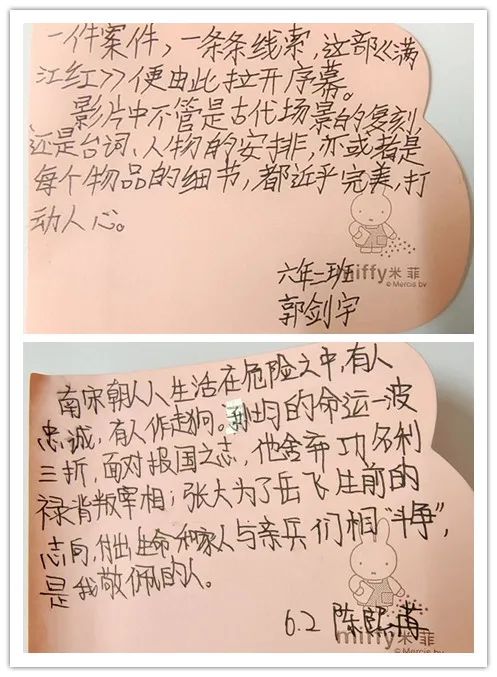 一件案件，一条条线索，这部《满
江红》便由此拉开序幕。
影片中不管是古代场景的复刻
还是台词、人物的安排，亦或者是
每个物品的细节，都近乎完美，打
动人心。
六年二班
miffy米菲
© Mercis bv
郭剑宇
南宋朝人人生活在危险之中，有人
忠诚，有人作走狗。均的命运一波
三折，面对报国之志，他舍弃功名利
禄背叛宰相；张大为了岳飞生前的
志向，付出生命和家人与亲兵们相“斗争”，
是我敬佩的人。
6.2 陈熙
miffy米菲
© Mercis bv